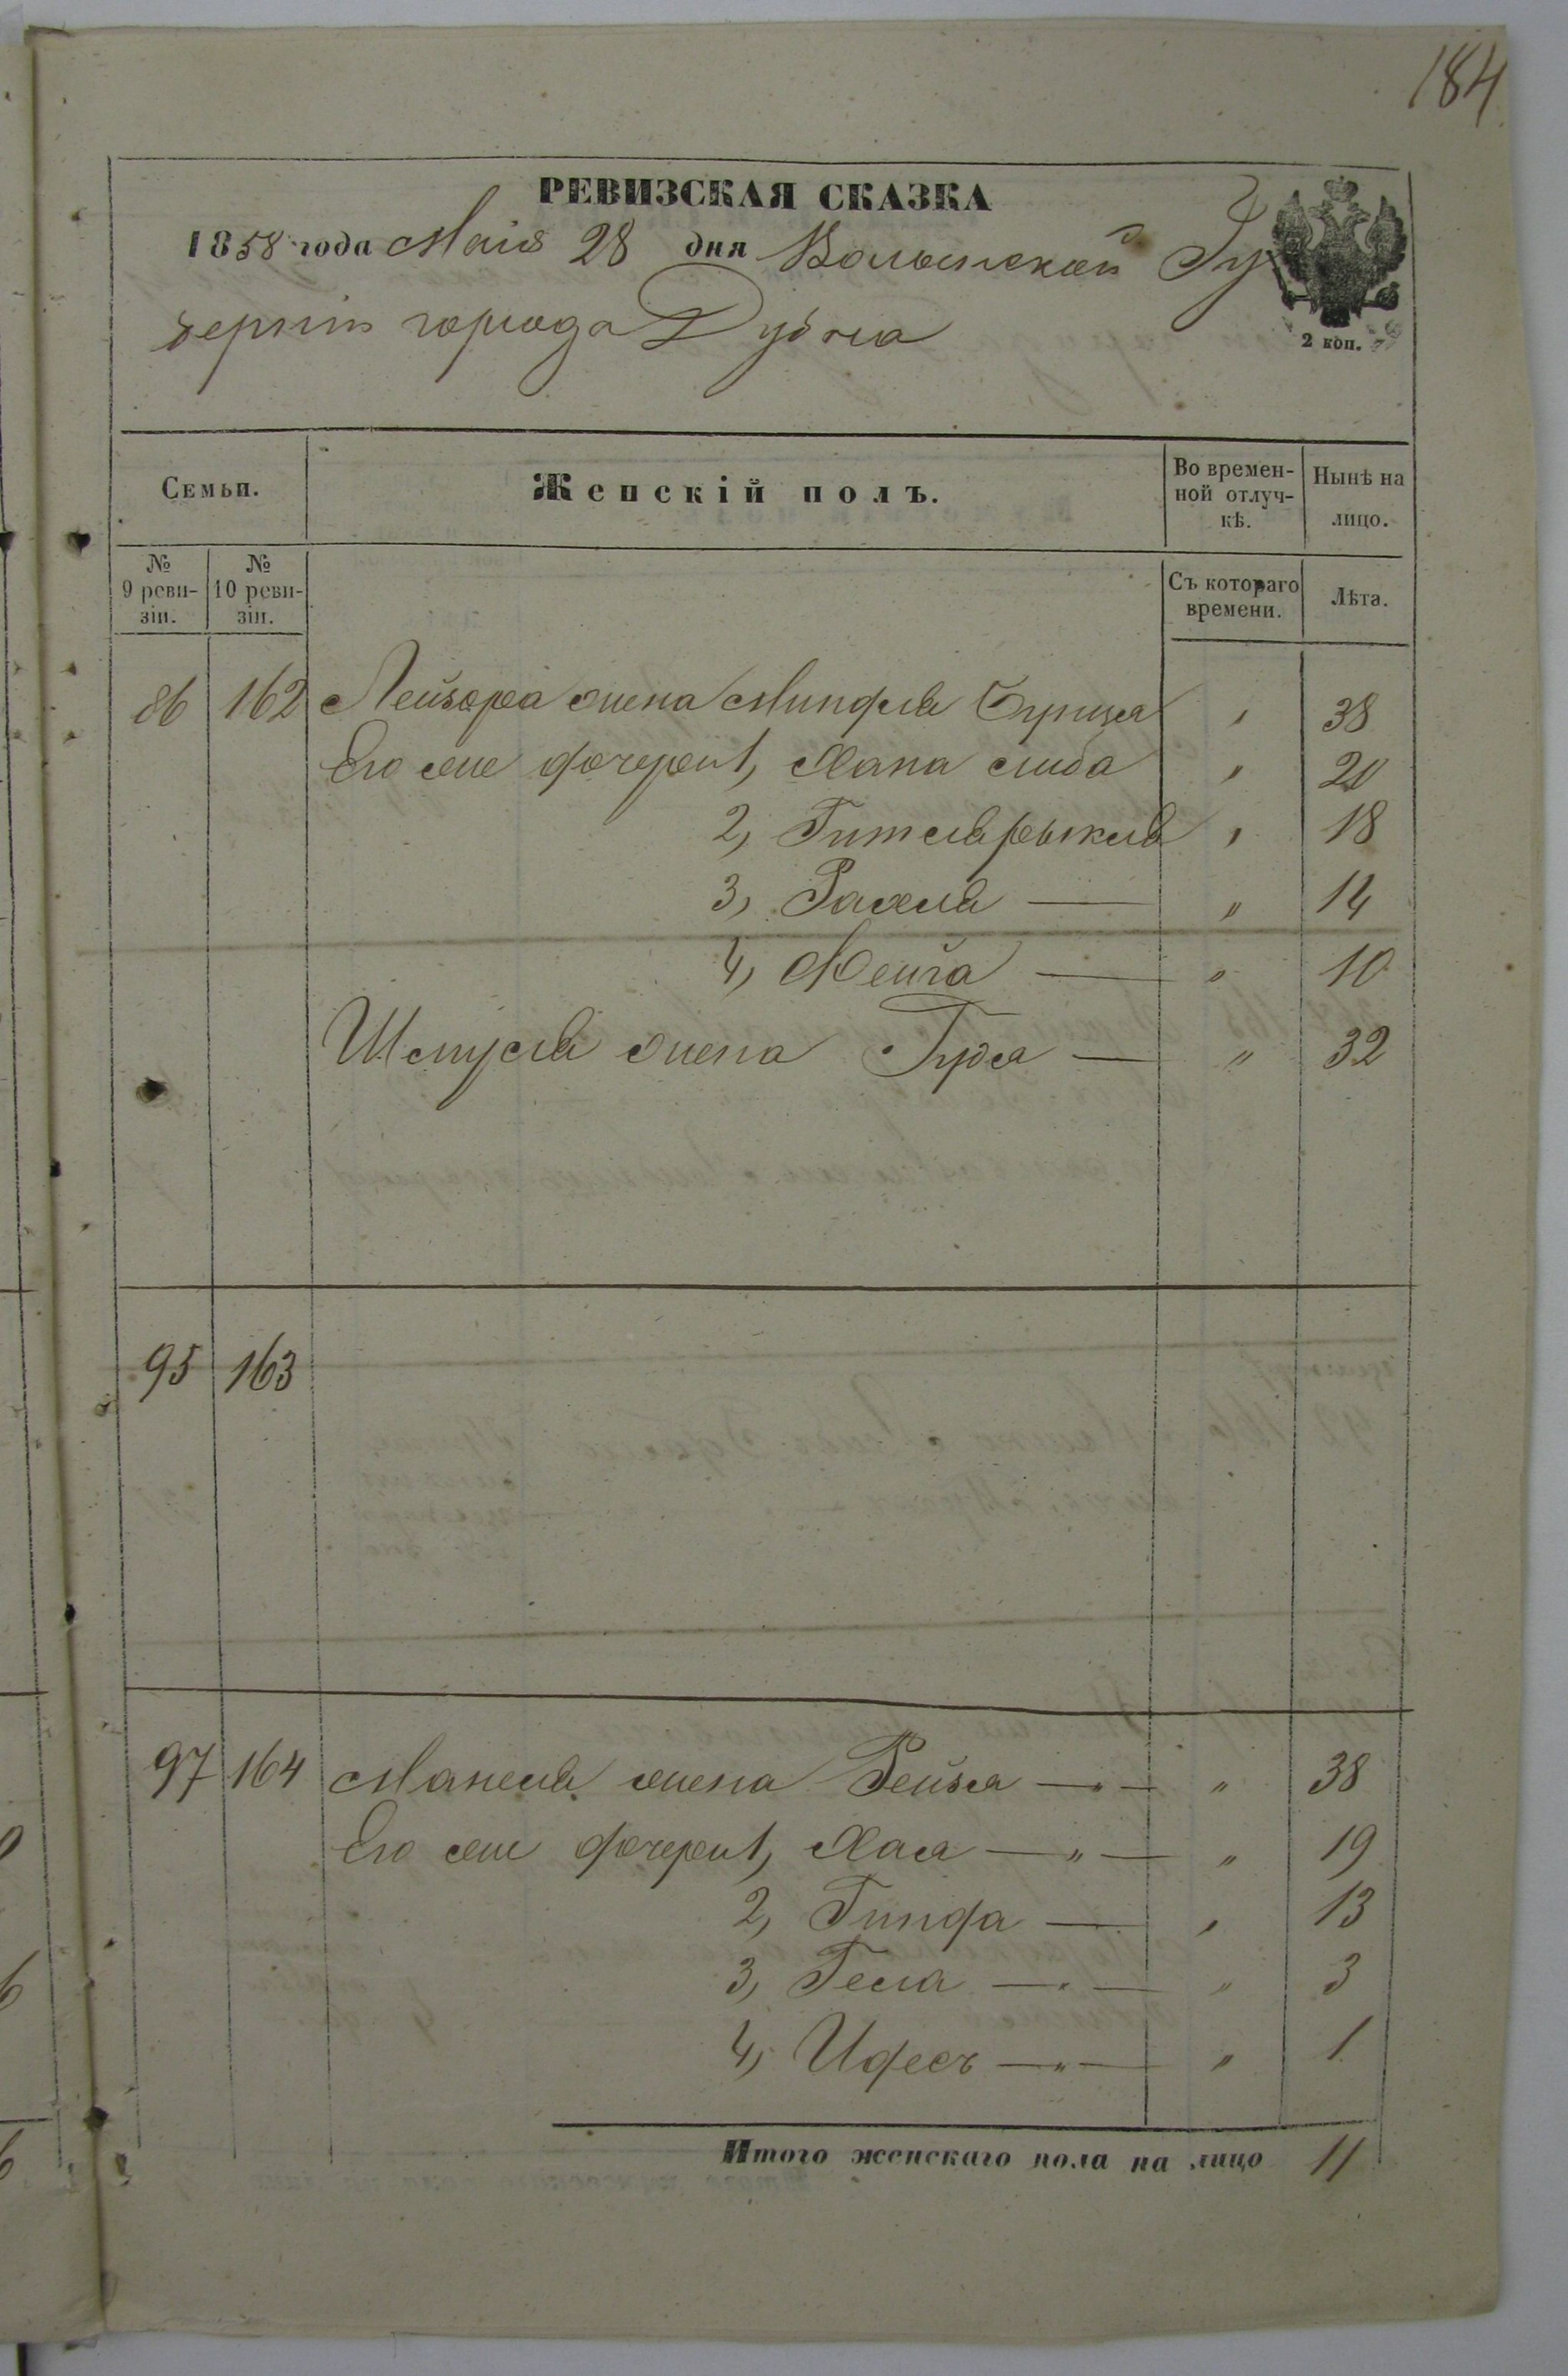 184
РЕВИЗСКАЯ СКАЗКА
1858 года Маія 28 дня Волынской Гу
берніи города Дубна
2 коп.
Семьи.
Женскій полъ.
Во времен-
ной отлуч-
кѣ.
Нынѣ на
лицо.
№
9 реви-
зіи.
№
10 реви-
зіи.
Съ котораго
времени.
Лѣта.
86 162 Лейзора жена Миндля Бунця " 38
Его же дочери 1, Хана Либа " 20
2, Гитля рыкля " 18
3, Рахля — " 14
4, Хейга — " 10
Шмуля жена Гудя — " 32
95 163
97 164 Манеля жена Рейзя — " — " 38
Его же дочери 1, Хая — " — " 19
2, Гинда — " 13
3, Гела — " — " 3
4, Идесъ — " — " 1
Итого женскаго пола на лицо 11